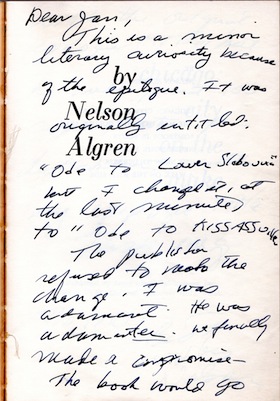 Dear Jan,
This is a minor
literary curiosity because
of the epilogue. It was
by
Nelson
originally entitled:
Algren
"Ode to Lower Slobovia"
but I changed it, at
the last minute,
to "Ode to Kissassville
The publisher
refused to make the
change. I was
adamant. He was
adamanter. We finally
made a compromise—
The book would go